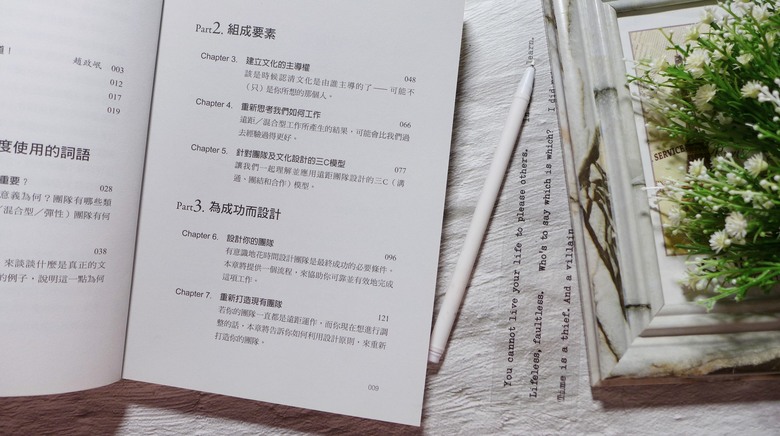 趙政岷 003
012
017
019
度使用的詞語
重要？ 028
意義為何？團隊有哪些類
／混合型／彈性）團隊有何
038
來談談什麼是真正的文
的例子，說明這一點為何
Part2. 組成要素
Chapter 3. 建立文化的主導權 048
該是時候認清文化是由誰主導的了——可能不
（只）是你所想的那個人。
Chapter 4. 重新思考我們如何工作 066
遠距／混合型工作所產生的結果，可能會比我們過
去經驗過得更好。
Chapter 5. 針對團隊及文化設計的三C模型 077
讓我們一起理解並應用遠距團隊設計的三C（溝
通、團結和合作）模型。
Part3. 為成功而設計
Chapter 6. 設計你的團隊 096
有意識地花時間設計團隊是最終成功的必要條件。
本章將提供一個流程，來協助你可靠並有效地完成
這項工作。
Chapter 7. 重新打造現有團隊 121
若你的團隊一直都是遠距運作，而你現在想進行調
整的話，本章將告訴你如何利用設計原則，來重新
打造你的團隊。
009
learn.
You cannot live your life to please others.
Lifeless, faultless. Who's to say which is which? I did
Time is a thief. And a villain
SERVICE